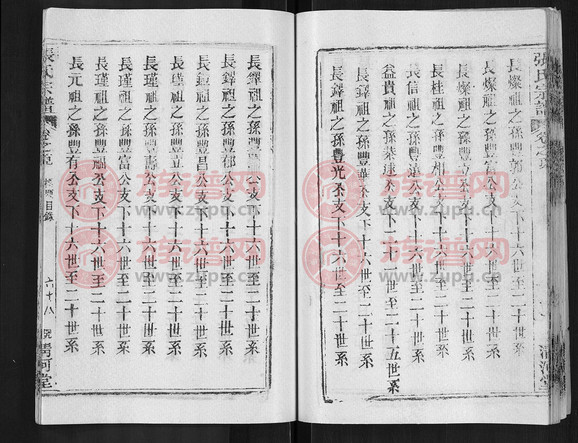 張氏宗譜
清河堂
長燦祖之孫豐 公支下十六世至二十世系
長燦祖之孫豐 公支下十六世至二十世系
長煃祖之孫豐 公支下十六世至二十世系
長信祖之孫豐遠公支下十六世至二十世系
益貴祖之孫 達公支下十 世至二十五世系
長鐸祖之孫豐 公支下十六世至二十世系
長鐸祖之孫豐光公支下十六世至二十世系
長鐸祖之孫豐 公支下十六世至二十世系
長鐸祖之孫豐郁公支下十六世至二十世系
長 祖之孫豐昌公支下十六世至二十世系
長瑾祖之孫豐 公支下十六世至二十世系
長瑾祖之孫豐壽公支下十六世至二十世系
長瑾祖之孫豐富公支下十六世至二十世系
長瑾祖之孫豐 公支下十六世至二十世系
長元祖之孫豐有公支下十六世至二十世系
張氏宗譜
目錄
六十八
清河堂
族谱网
www.zupu.cn
族谱网
www.zupu.cn
族谱网
www.zupu.cn
族谱网
www.zupu.cn